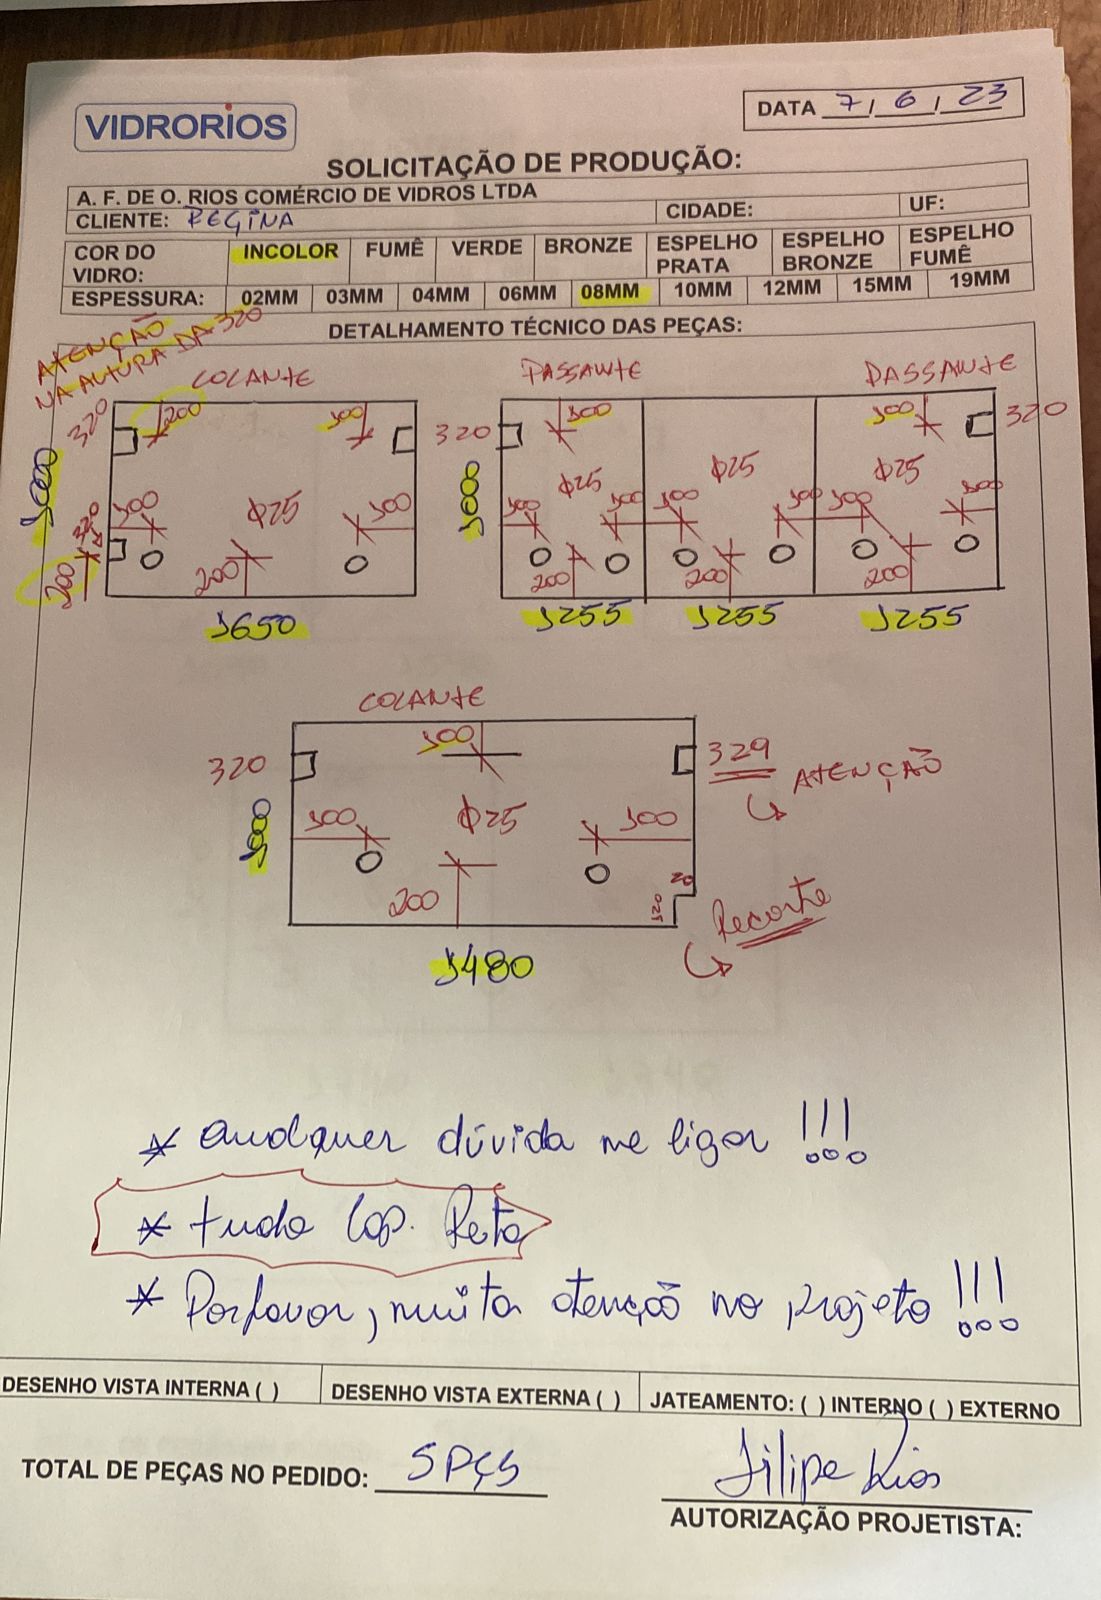 VIDRORIOS
DATA 7, 6, 23
SOLICITAÇÃO DE PRODUÇÃO:
A. F. DE O. RIOS COMÉRCIO DE VIDROS LTDA
CLIENTE: REGINA CIDADE: UF:
COR DO VIDRO: INCOLOR FUMÊ VERDE BRONZE ESPELHO PRATA ESPELHO BRONZE ESPELHO FUMÊ
ESPESSURA: 02MM 03MM 04MM 06MM 08MM 10MM 12MM 15MM 19MM
DETALHAMENTO TÉCNICO DAS PEÇAS:
ATENÇÃO
NA ALTURA DA 320
COLANTE PASSANTE PASSANTE
320 200 100 320 100 100 320
1000 1000
100 Φ25 100 100 Φ25 100 100 Φ25 100 100 Φ25 100
320
200 200 200 200 200
1650 1255 1255 1255
COLANTE
320 100 329 ATENÇÃO
1000 100 Φ25 100
200 20
025 Recorte
1480
* Qualquer dúvida me ligar !!!
* tudo Lap. Reta
* Por favor, muita atenção no projeto !!!
DESENHO VISTA INTERNA ( ) DESENHO VISTA EXTERNA ( ) JATEAMENTO: ( ) INTERNO ( ) EXTERNO
TOTAL DE PEÇAS NO PEDIDO: 5 PÇS Filipe Rios
AUTORIZAÇÃO PROJETISTA: